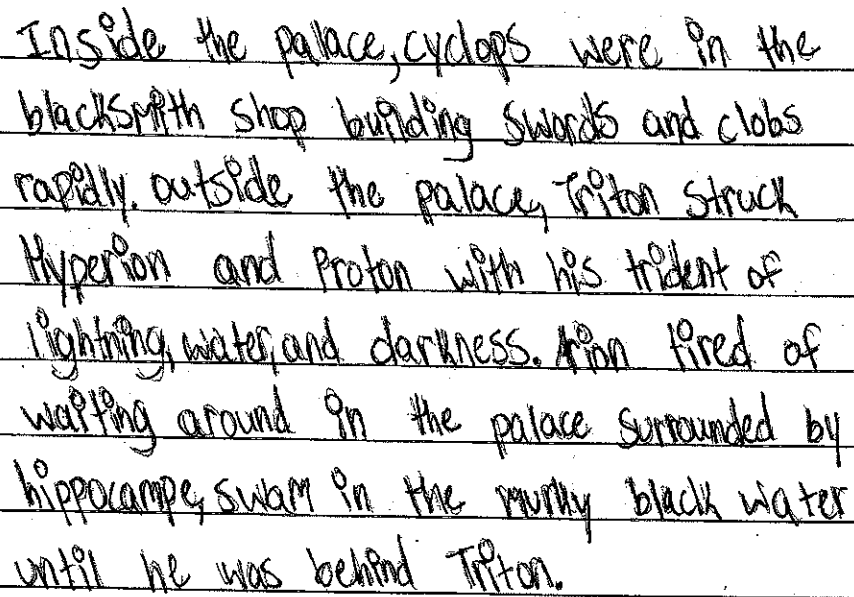 Inside the palace, cyclops were in the
blacksmith shop building swords and clobs
rapidly. outside the palace, Triton struck
Hyperion and Proton with his trident of
lightning, water, and darkness. Arion tired of
waiting around in the palace surrounded by
hippocampe, swam in the murky black water
until he was behind Triton.